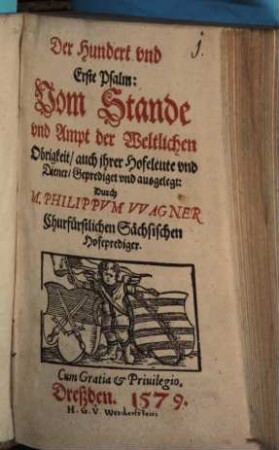 Der Hundert vnd
1.
Erste Psalm:
Vom Stande
vnd Ampt der Weltlichen
Obrigkeit/ auch jhrer Hofeleute vnd
Diener/ Geprediget vnd ausgelegt:
Durch
M. PHILIPPVM VVAGNER
Churfürstlichen Sächsischen
Hofeprediger.
Cum Gratia & Priuilegio.
Dreßden. 1579.
H. G. V.